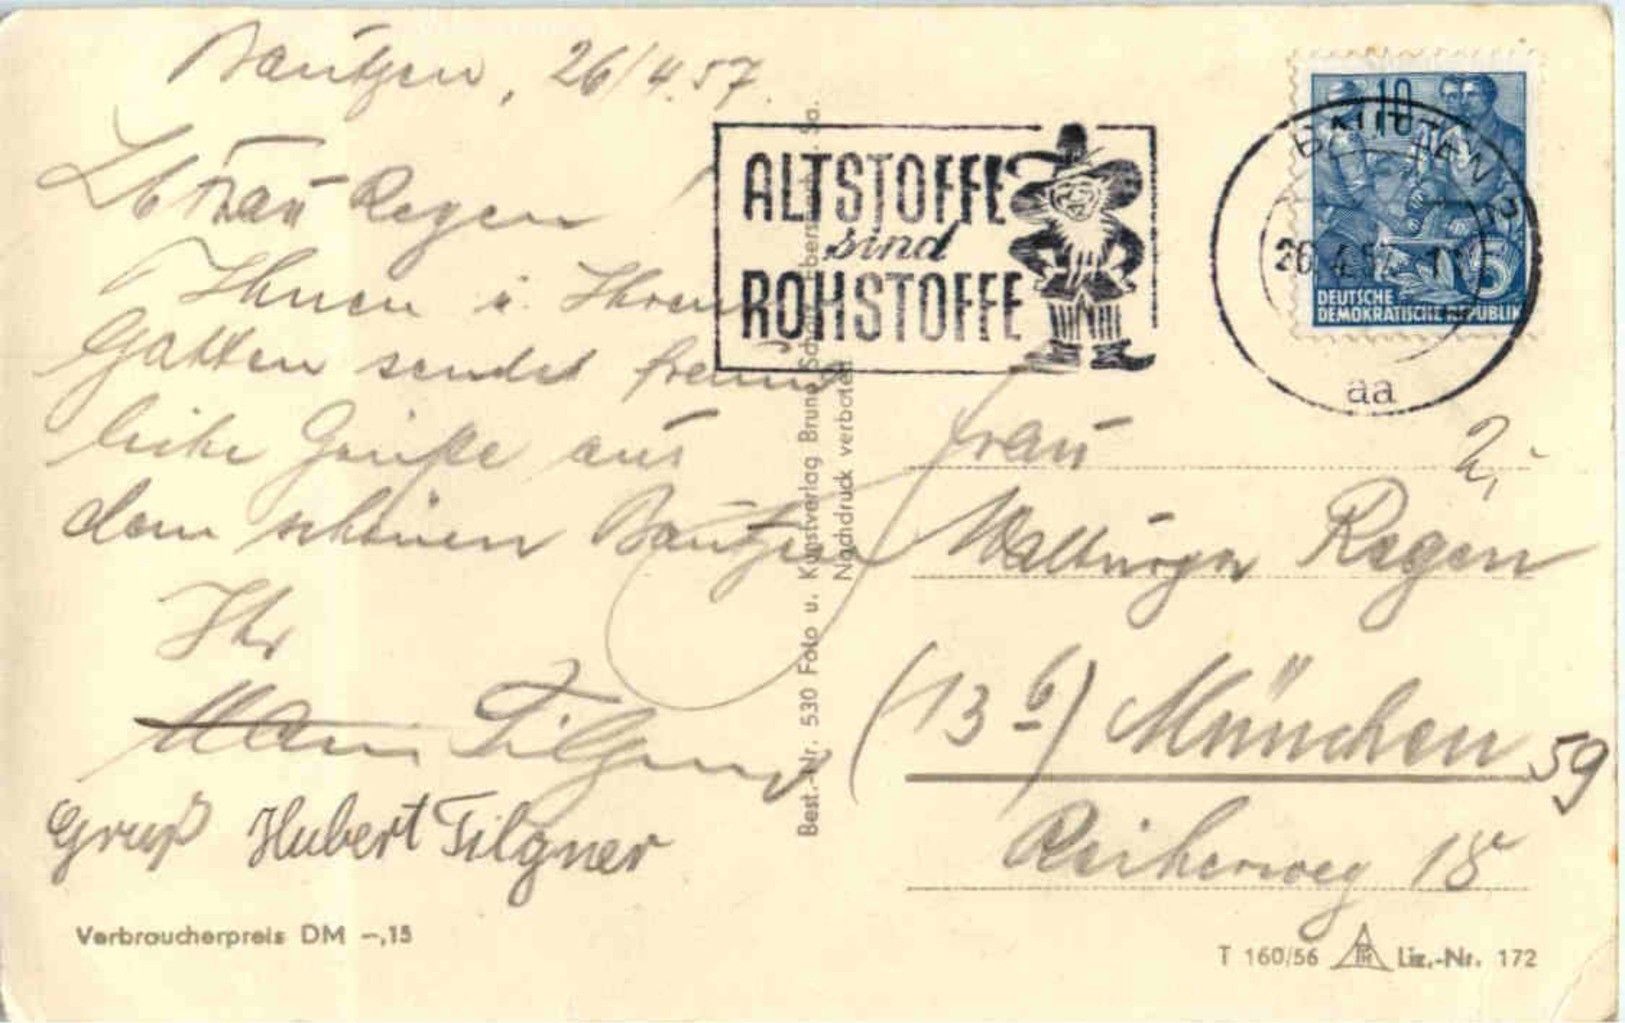 Bautzen, 26/4.57.
Lb Frau Regen
Ihnen u. Ihrem
Gatten sendet freund
liche Grüße aus
dem schönen Bautzen
Ihr
Filgner
Gruß Hubert Filgner
Verbraucherpreis DM -,15
Best.-Nr. 530 Foto u. Kunstverlag Bruno
Nachdruck verboten
ALTSTOFFE
sind
ROHSTOFFE
BAUTZEN 2
26.4.57
aa
10
5
DEUTSCHE
DEMOKRATISCHE REPUBLIK
Frau
Walburga Regen
(13 b) München 59
Reiherweg 18
T 160/56 Liz.-Nr. 172